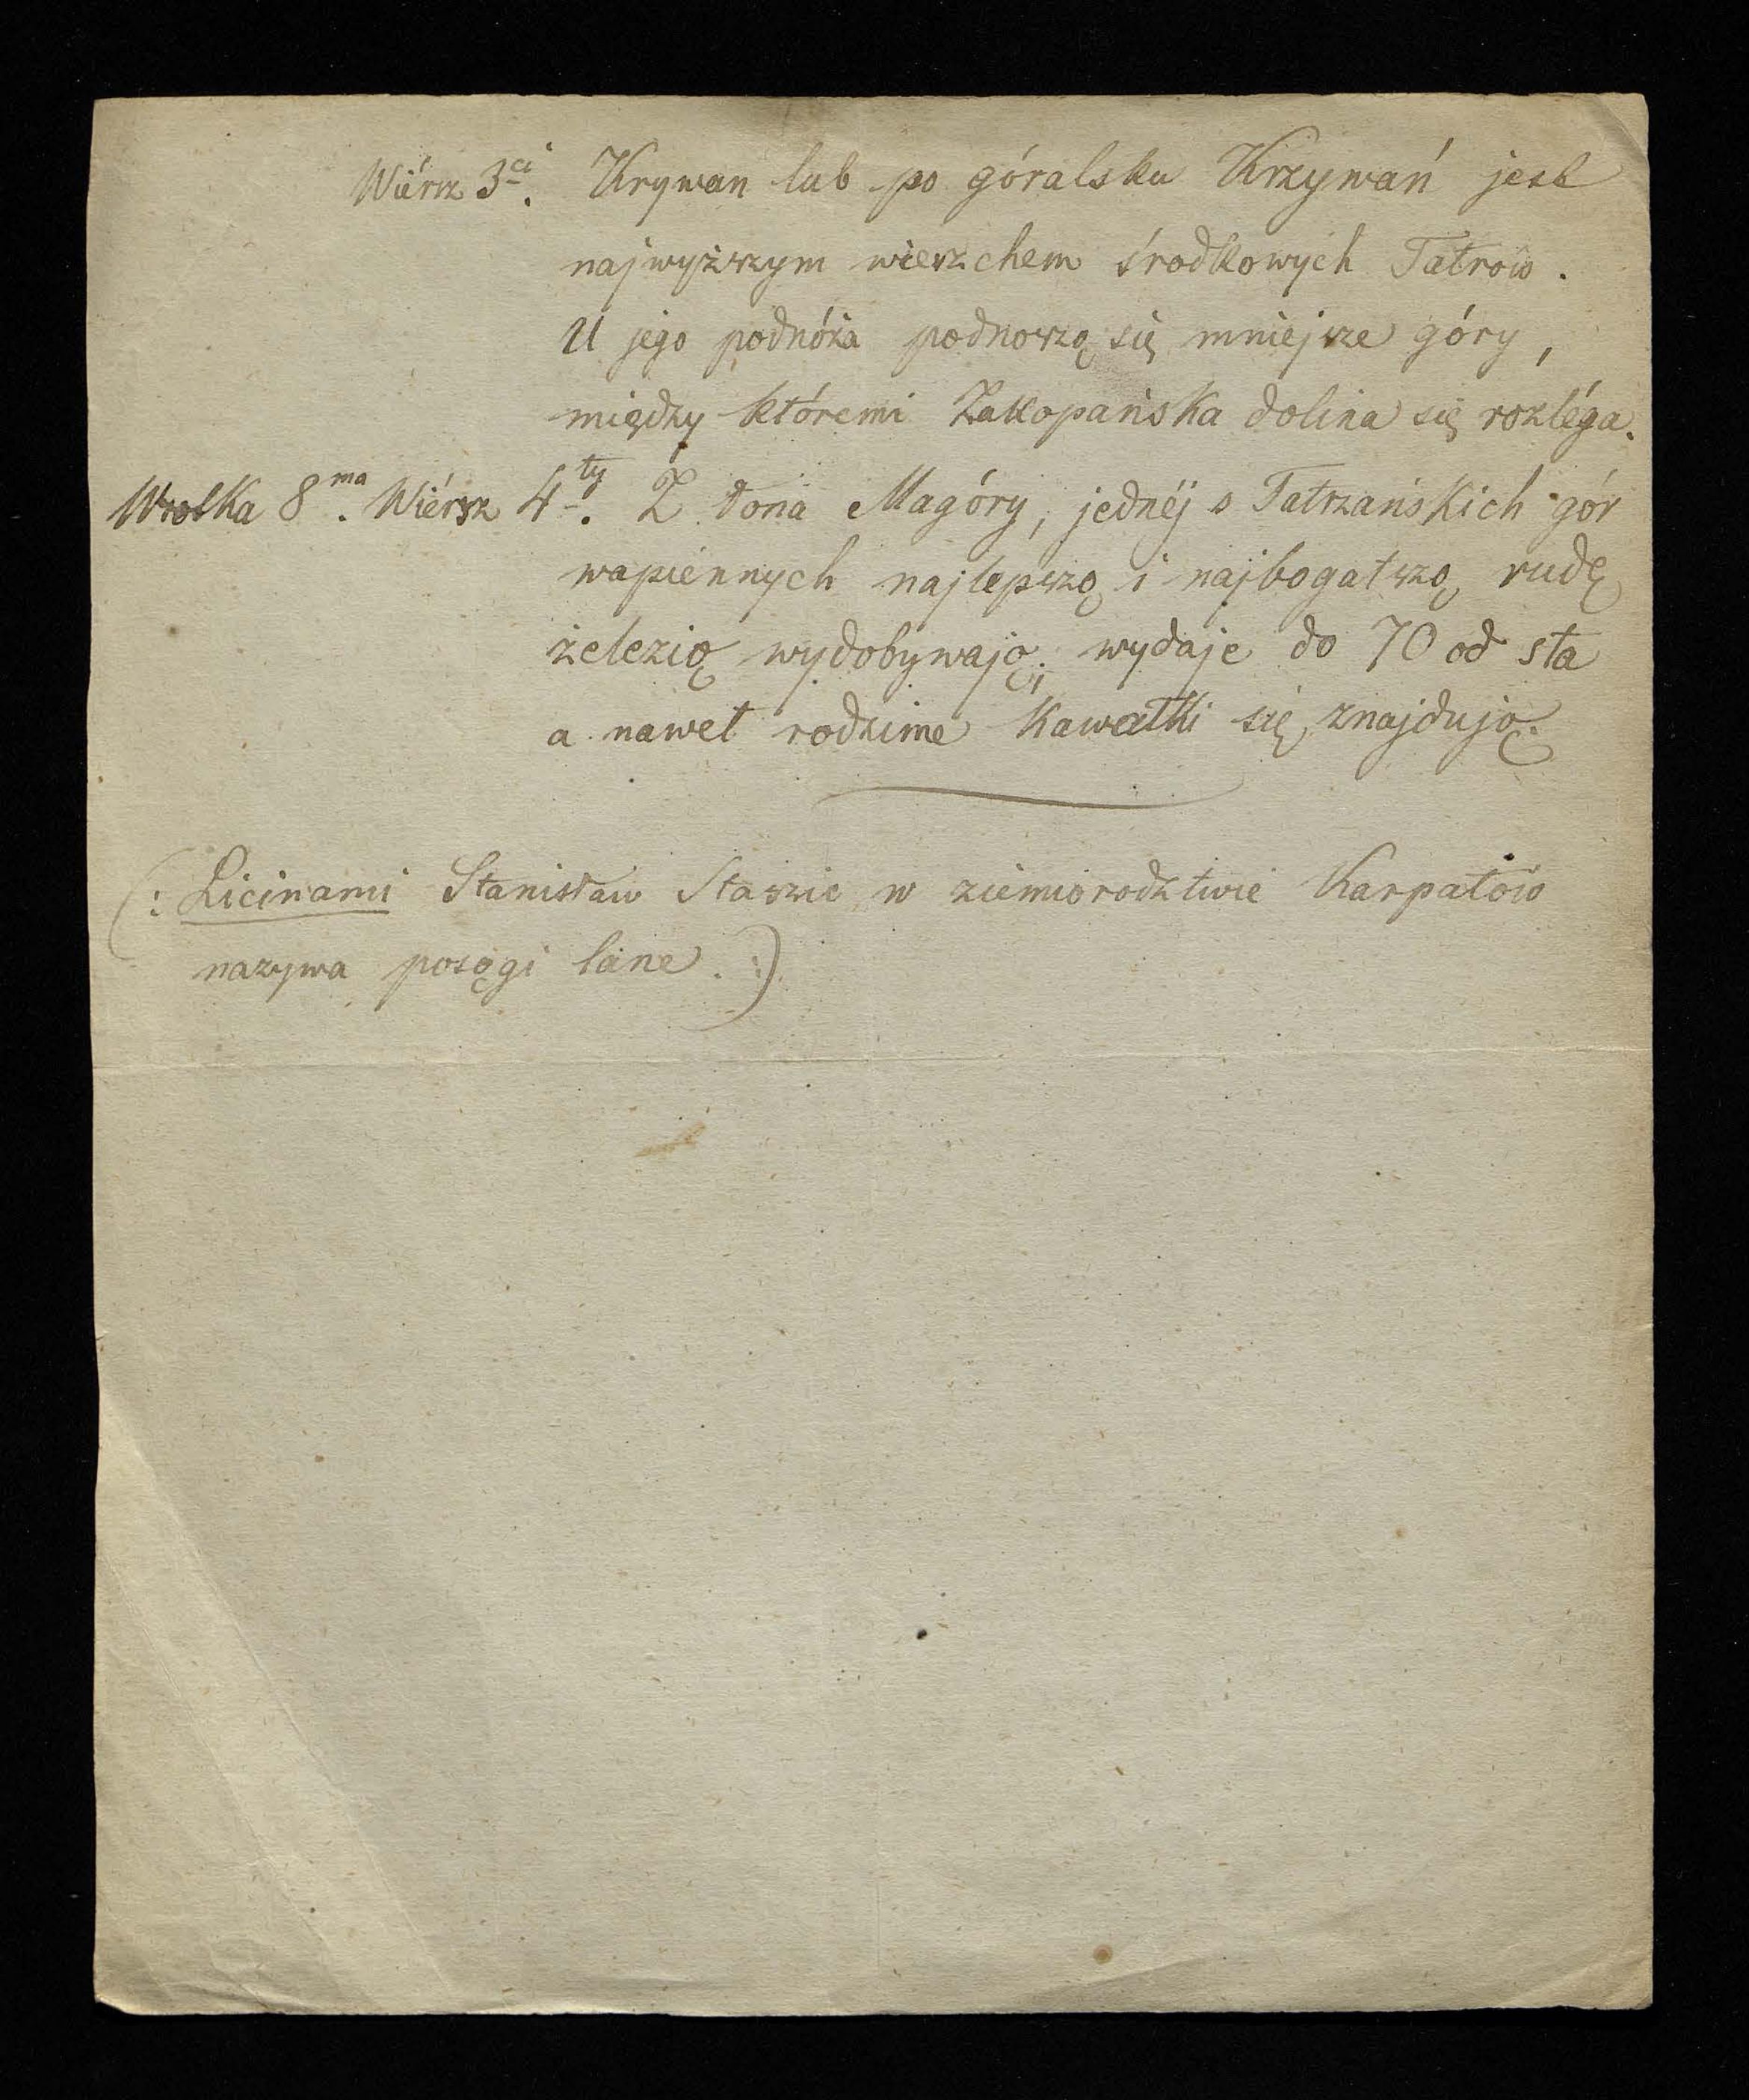 Wiérsz 3ci. Krywan lub po góralsku Krzywań jest
najwyższym wierzchem środkowych Tatrów.
U jego podnóża podnoszą się mniejsze góry,
między któremi Zakopańska dolina się rozléga.
Wrotka 8ma. Wiérsz 4ty. Z łona Magóry, jednéj s Tatrzańskich gór
wapiennych najlepszą i najbogatszą rudę
żelezią wydobywają; wydaje do 70 od sta
a nawet rodzime kawałki się znajdują.
(: Licinami Stanisław Staszic w ziemiorodztwie Karpatów
nazywa posągi lane. :)